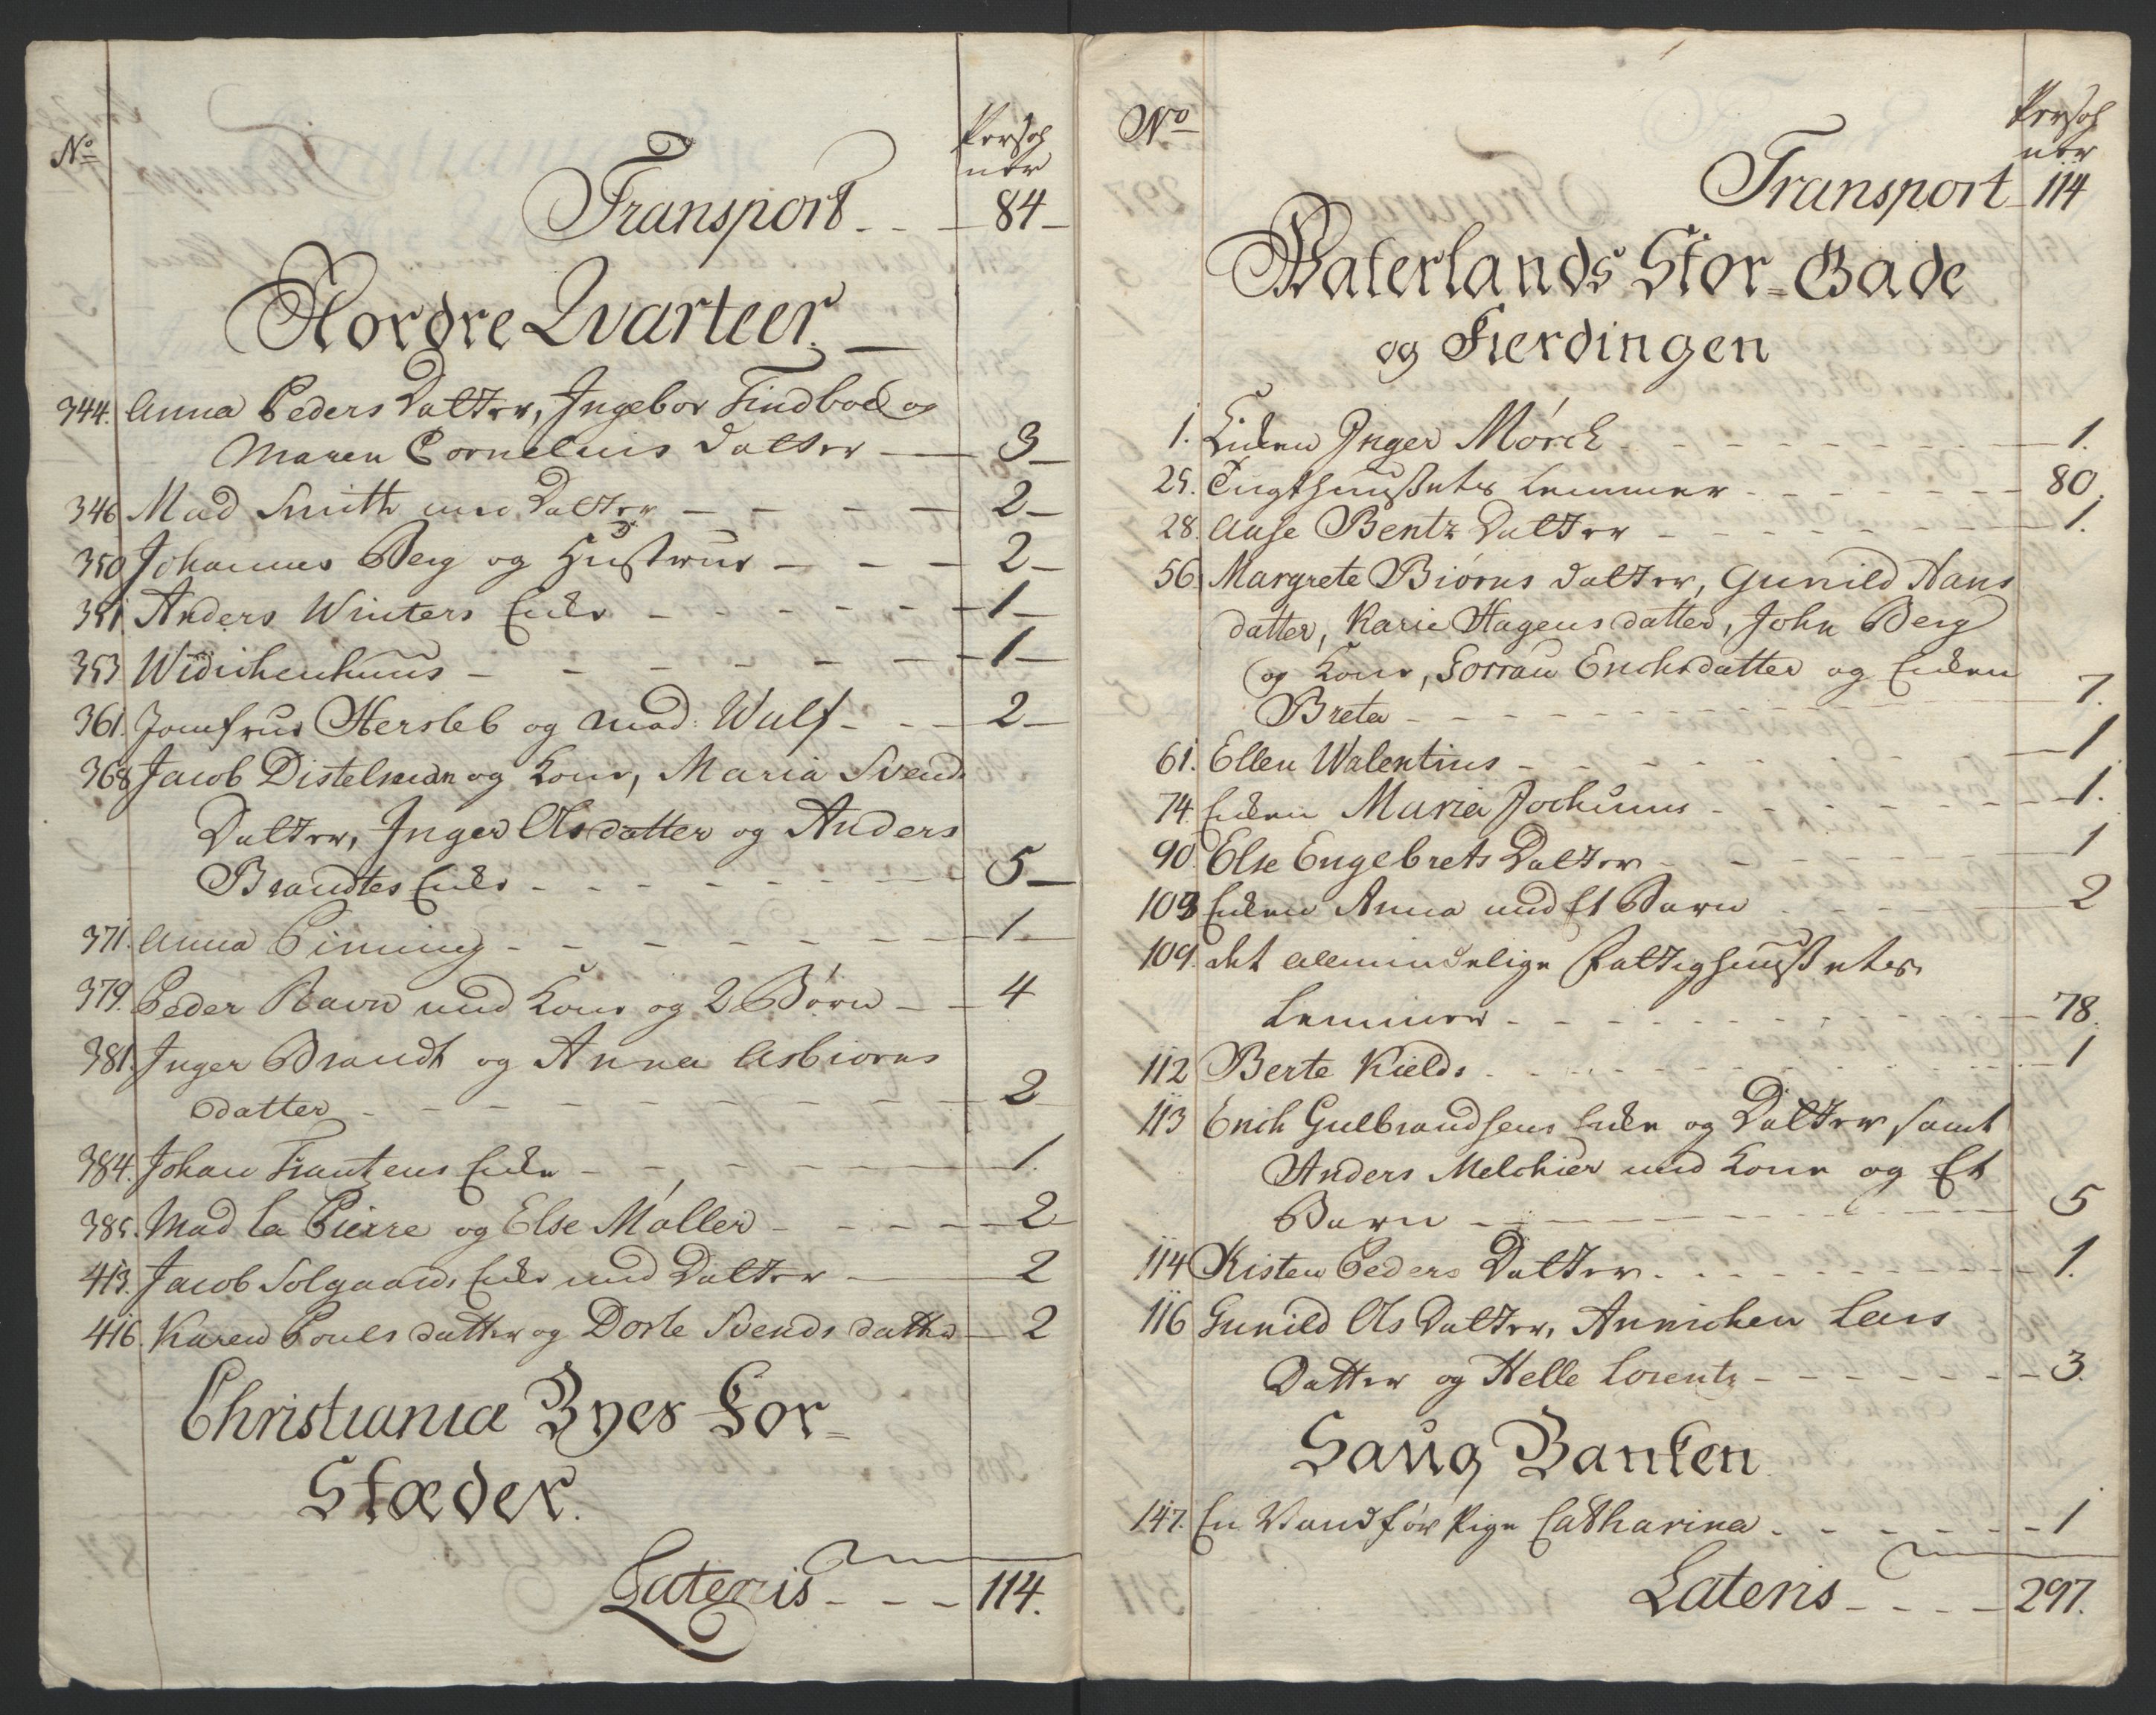 No
Persoh
ner
Transport - - - 84 -
Nordre Qvarteer.
344. Anna Peders Datter, Ingebor Findboe og
Maren Cornelius datter - 3 -
346 Mad Smith med Datter - - - - 2 -
350 Johannes Berg og Hustrue - - - 2 -
351 Anders Winters Enke - - - - - 1 -
353 Widichenhuus - - - - - - 1 -
361. Jomfrue Hersleb og Mad: Wulf - - - 2 -
368 Jacob Distelman og Kone, Maria Svends
Datter, Inger Olsdatter og Anders
Brandtes Enke - - - - - - - 5 -
371. Anna Pinning - - - - - - - 1 -
379. Peder Ravn med Kone og 2 Børn - - 4
381. Inger Brandt og Anna Asbiørns
datter - - - - - - - - 2
384. Johan Frantzens Enke - - - - - 1.
385. Mad la Pierre og Else Møller - - - - 2
413. Jacob Solgaards Enke med Datter - 2
416. Karen Pouls datter og Dorte Svends datter - 2
Christiania Byes For-
Stæder.
Lateris - - - 114.
No
Persoh
ner
Transport - 114
Waterlands Stor-Gade
og Fierdingen
1. Enken Inger Mørch - - - - - - - 1.
25. Tugthuußets Lemmer - - - - - - 80.
28. Aase Bentz Datter - - - - - - - 1.
56 Margrete Biørns datter, Gunild Hans
datter, Karie Hagens datter, John Berg
og Kone, Sorrau Erichsdatter og Enken
Breta - - - - - - - - - 7.
61. Ellen Walentins - - - - - - - 1
74. Enken Maria Jochums - - - - - 1.
90. Else Engebrets Datter - - - - - - 1
103 Enken Anna med Et Barn - - - - 2
109. det allmindelige Fattighuußets
Lemmer - - - - - - - - - 78.
112 Berte Kields - - - - - - - - 1
113 Erich Gulbrandsens Enke og Datter samt
Anders Melchier med Kone og Et
Barn - - - - - - - - 5
114 Kisten Peders Datter - - - - - - - 1.
116 Gunild Ols Datter, Annichen Lars
Datter og Helle Lorentz - - - - - - 3.
Saug Banken
147. En Vandfør Pige Catharina - - - - - 1
Lateris - - - - 297.